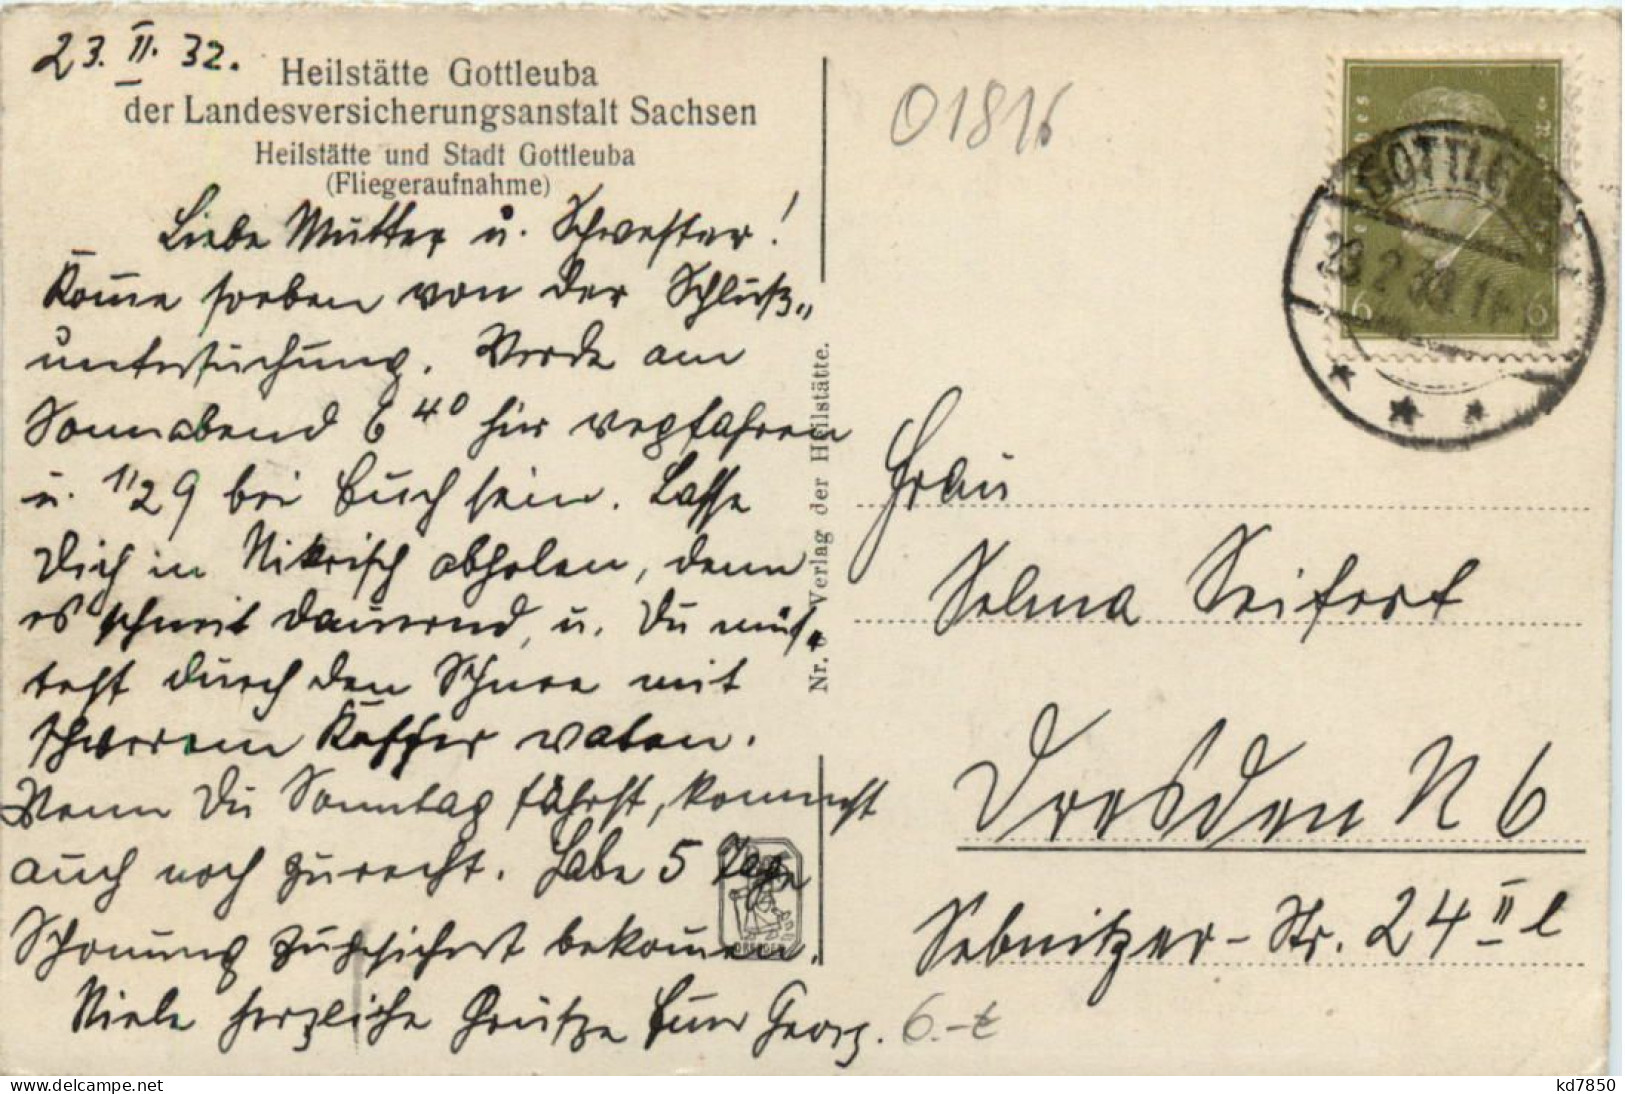 23. II. 32.
Heilstätte Gottleuba
der Landesversicherungsanstalt Sachsen
Heilstätte und Stadt Gottleuba
(Fliegeraufnahme)
Liebe Mutter u. Schwester!
Kom̄e soeben von der Schluß„
untersuchung. Werde am
Sonnabend 6 40 hier wegfahren
u. 1/2 9 bei Euch sein. Lasse
Dich in Nikrisch abholen, denn
es schneit dauernd, u. Du müß„
test durch den Schnee mit
schwerem Koffer waten.
Wenn Du Sonntag fährst, kommst
auch noch zurecht. Habe 5 Tage
Schonung zugesichert bekom̄en.
Viele herzliche Grüße Euer Georg.
Nr. Verlag der Heilstätte.
01816
GOTTLEUBA
6 6
Frau
Selma Seifert
Dresden N 6
Sebnitzer-Str. 24 II l
6.-
kd7850